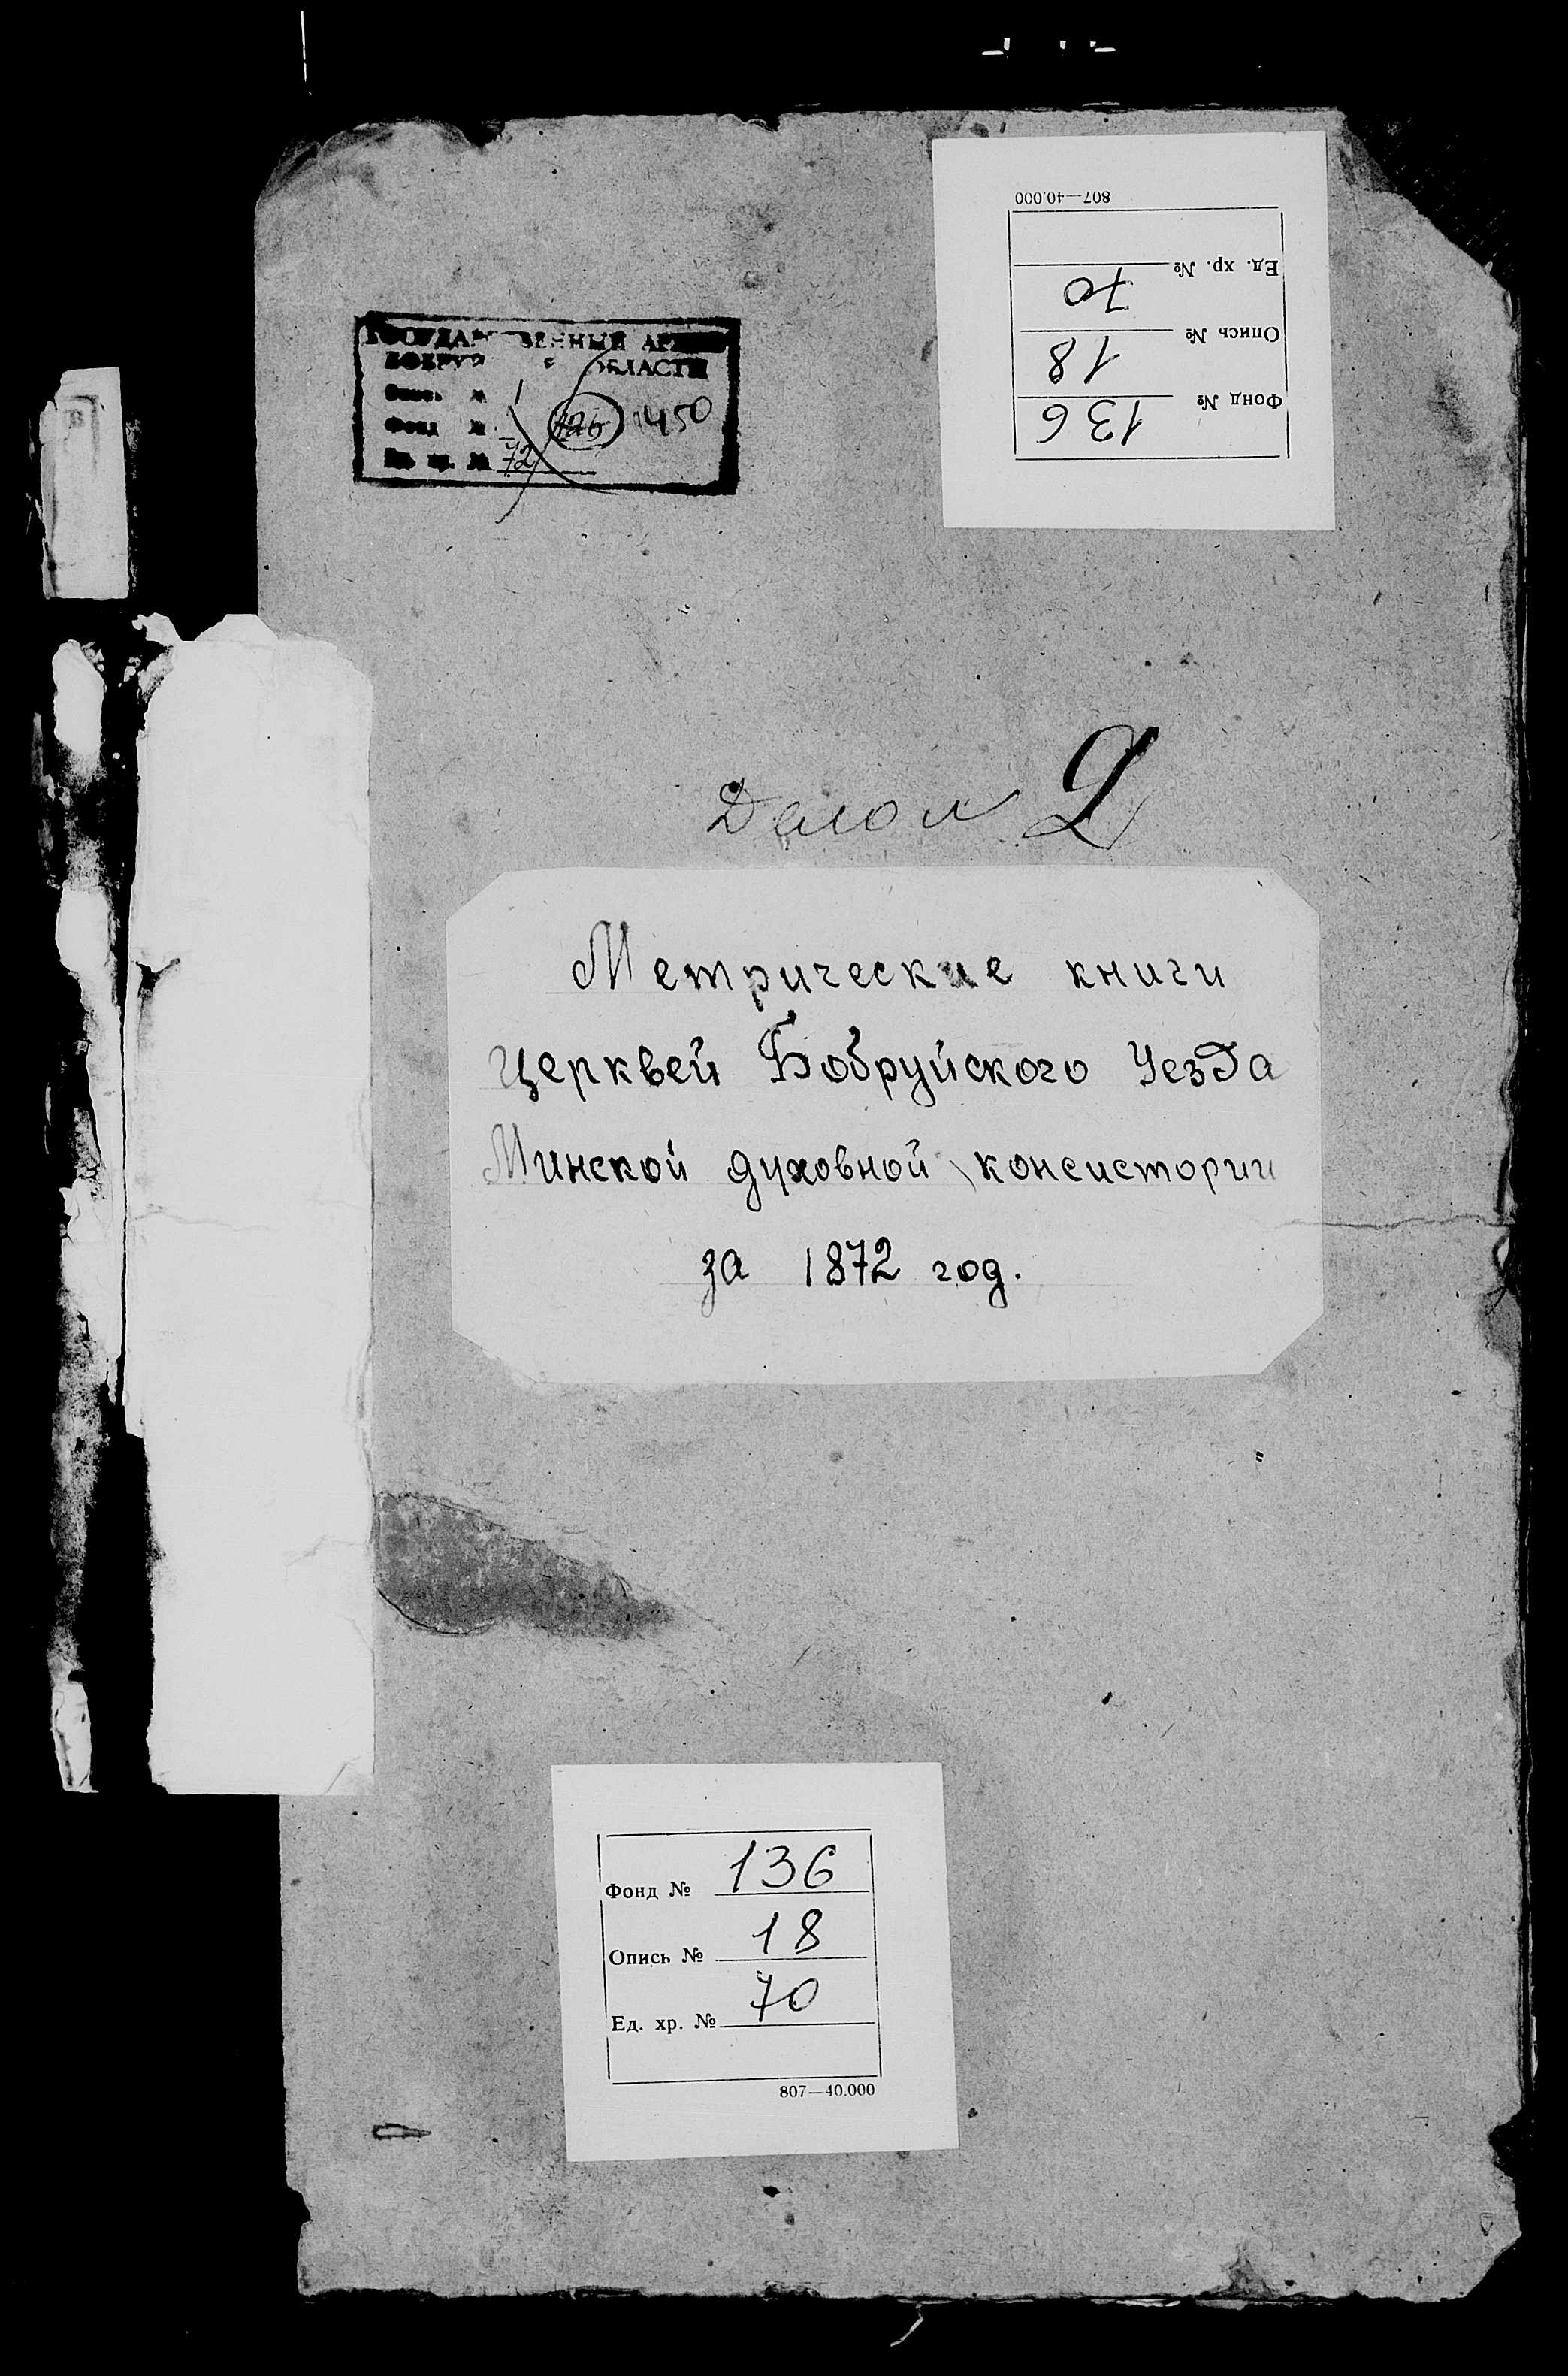 807—40.000
Ед. хр. № 70
Опись № 18
Фонд № 136
ГОСУДАРСТВЕННЫЙ АРХИВ
ОБЛАСТИ
Опись № 1
Фонд № 1450
Ед. хр. № 72
Метрические книги
Церквей Бобруйского Уезда
Минской духовной консистории
за 1872 год.
Фонд № 136
Опись № 18
Ед. хр. № 70
807—40.000